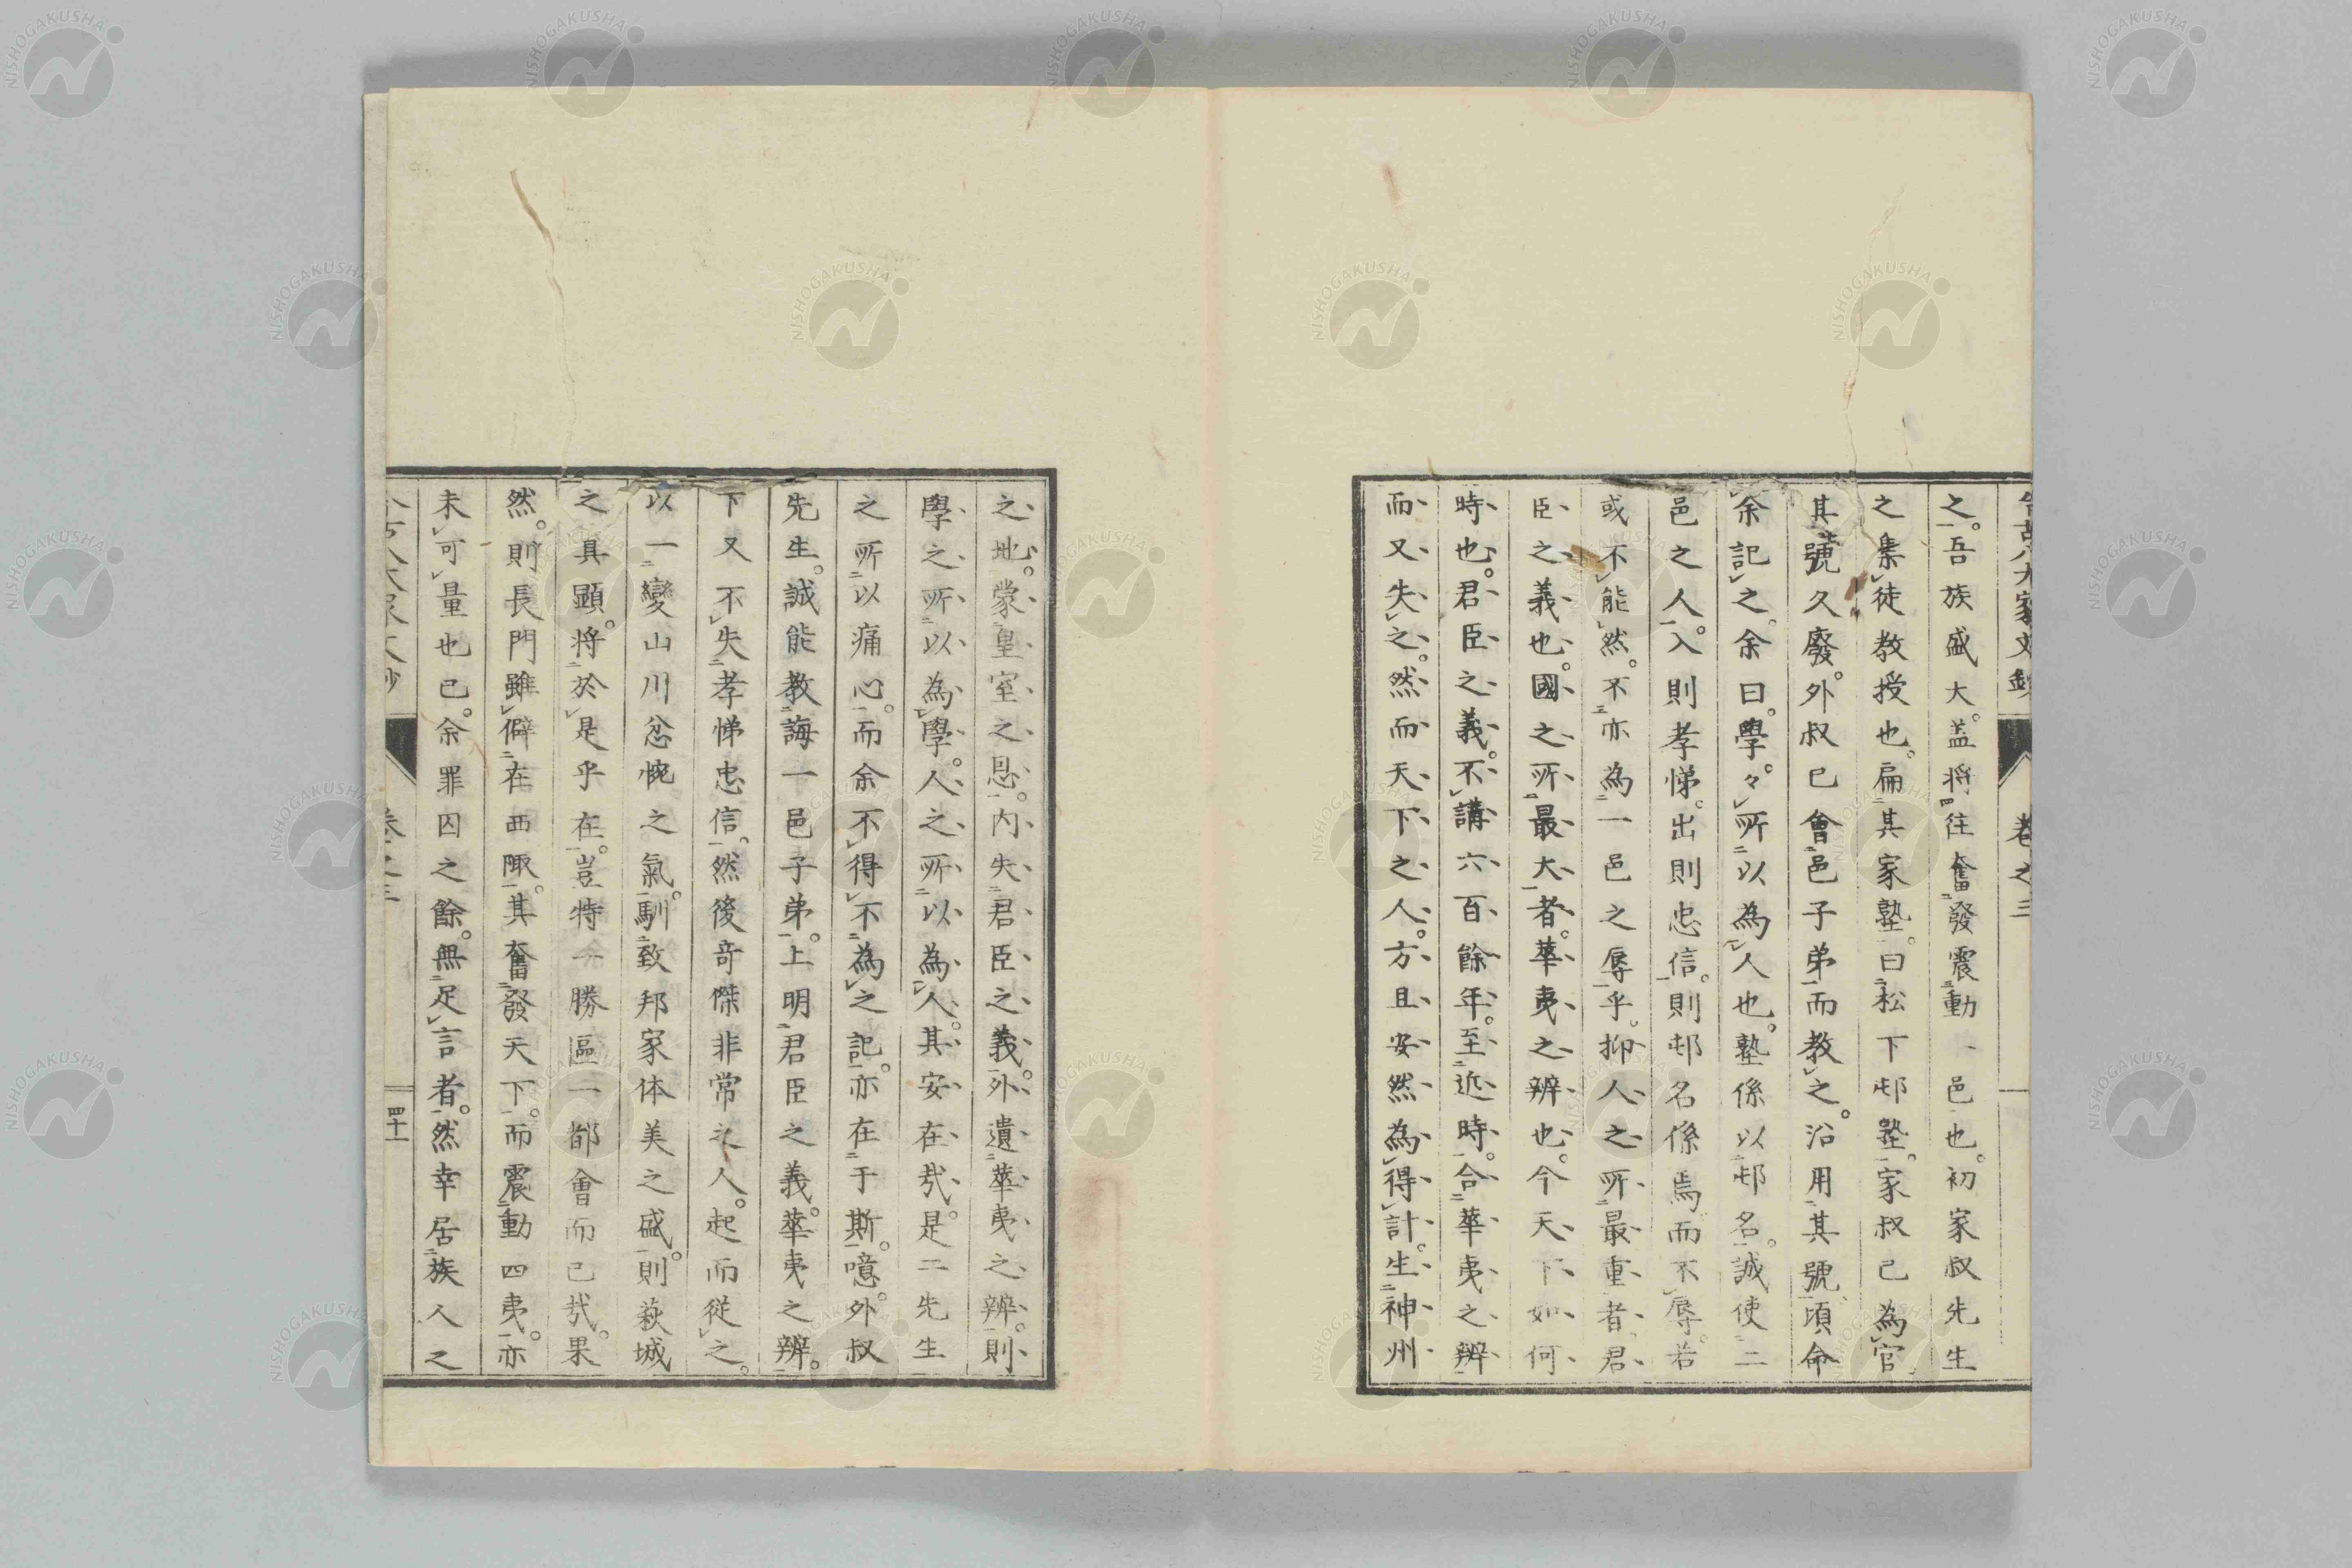 今古八大家文鈔 卷之三
之。吾族盛大。盖將往奮發震動一邑也。初家叔先生
之集徒教授也。扁其家塾。曰松下邨塾。家叔已為官
其號久廢。外叔已會邑子弟而教之。沿用其號。頃命
余記之。余曰。學々。所以為人也。塾係以邨名。誠使二
邑之人。入則孝悌。出則忠信。則邨名係焉而不辱。若
或不能然。不亦為一邑之辱乎。抑人之所最重者。君
臣之義也。國之所最大者。華夷之辨也。今天下如何
時也。君臣之義。不講六百餘年。至近時。合華夷之辨
而又失之。然而天下之人。方且安然為得計。生神州
之地。蒙皇室之恩。內失君臣之義。外遺華夷之辨。則
學之所以為學。人之所以為人。其安在哉。是二先生
之所以痛心。而余不得不為之記。亦在于斯。噫。外叔
先生。誠能教誨一邑子弟。上明君臣之義。華夷之辨。
下又不失孝悌忠信。然後奇傑非常之人。起而從之。
以一變山川忿惋之氣。馴致邦家体美之盛。則萩城
之具顕。將於是乎在。豈特一勝區一都會而已哉。果
然。則長門雖僻在西陬。其奮發天下。而震動四夷。亦
未可量也已。余罪囚之餘。無足言者。然幸居族人之
四十一
NISHOGAKUSHA